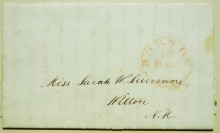 BOSTON
Miss Sarah W. Livermore
Wilton
N.H.